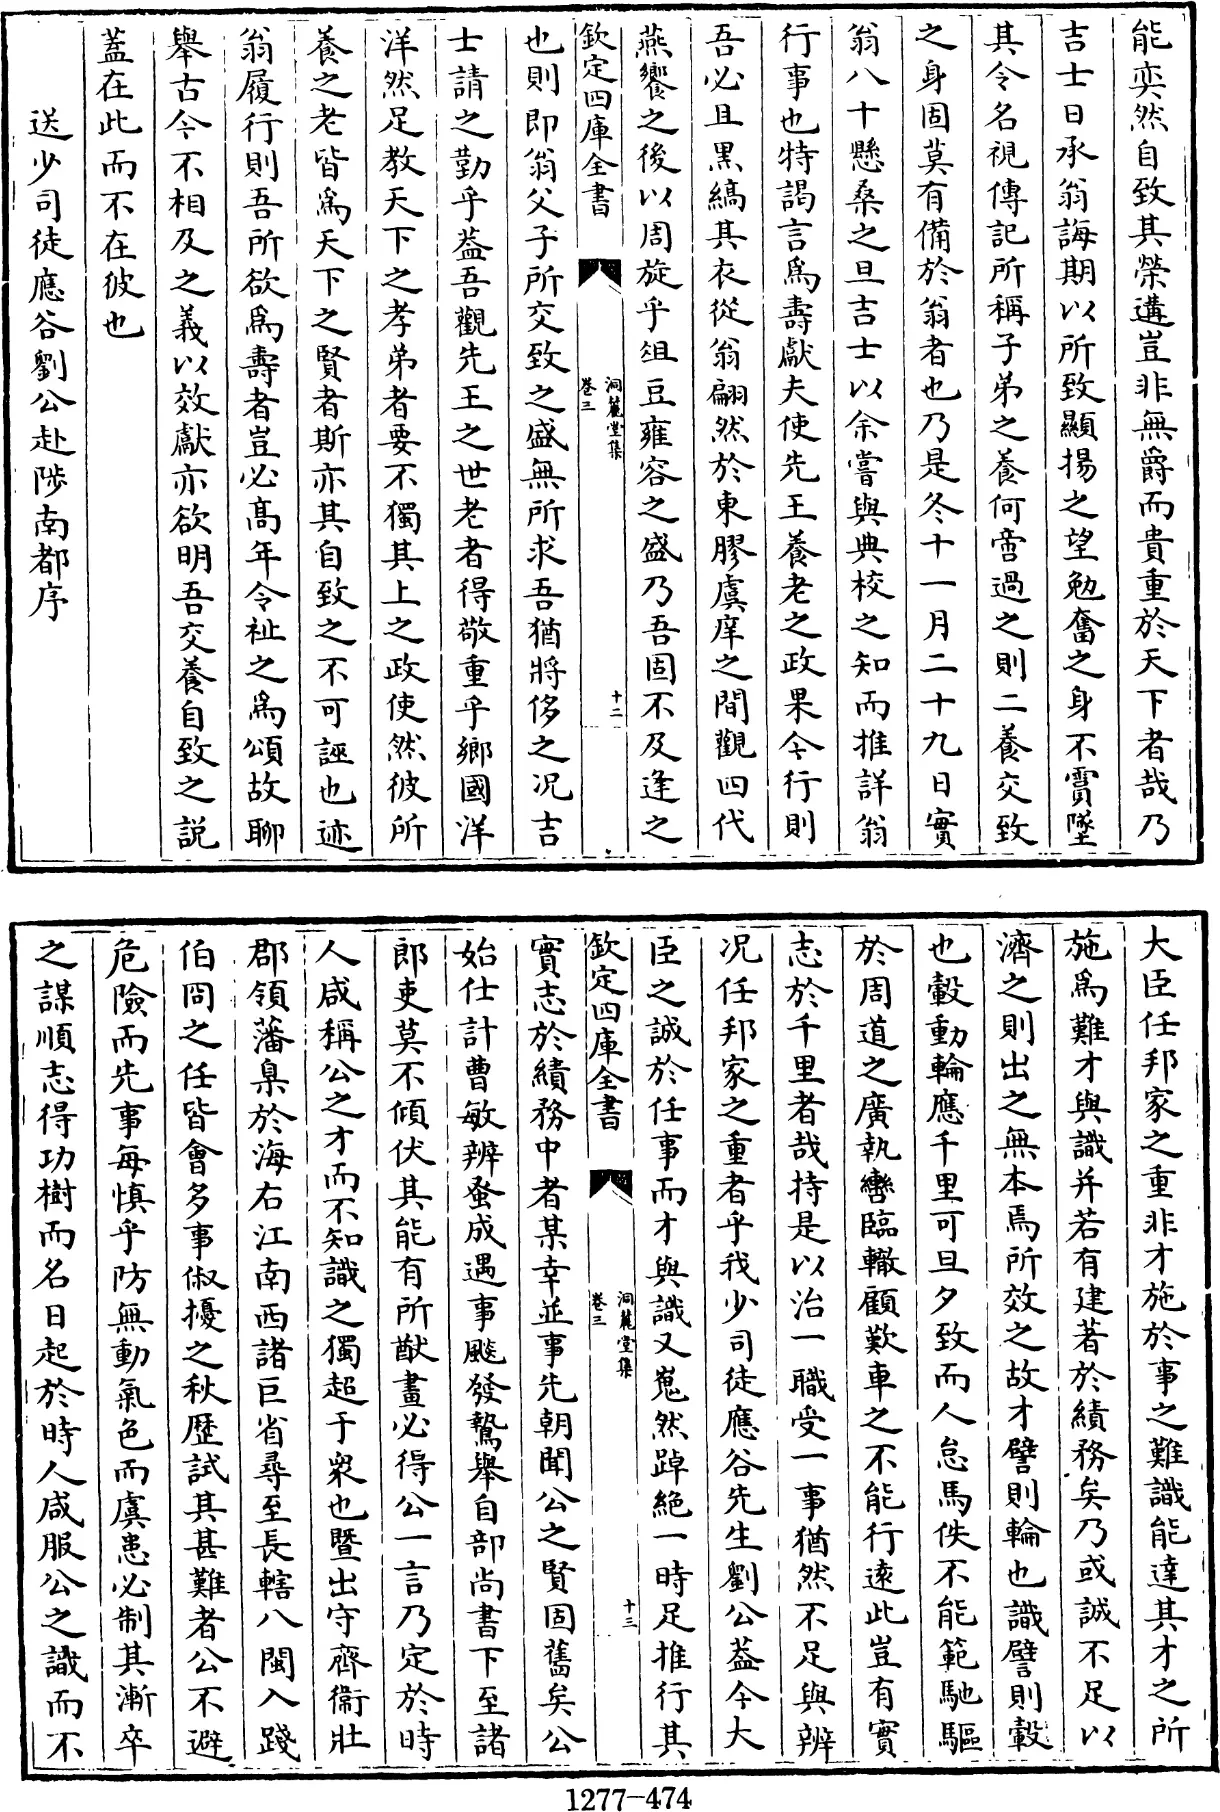 能奕然自致其榮遘豈非無爵而貴重於天下者哉乃
吉士日承翁誨期以所致顯揚之望勉奮之身不霣墜
其令名視傳記所稱子弟之養何啻過之則二養交致
之身固莫有備於翁者也乃是冬十一月二十九日實
翁八十懸桑之旦吉士以余嘗與典校之知而推詳翁
行事也特謁言爲壽獻夫使先王養老之政果今行則
吾必且黑縞其衣從翁翩然於東膠虞庠之間觀四代
燕饗之後以周旋乎俎豆雍容之盛乃吾固不及逢之
欽定四庫全書
洞麓堂集
卷三
十二
也則即翁父子所交致之盛無所求吾猶將侈之况吉
士請之勤乎葢吾觀先王之世老者得敬重乎鄉國洋
洋然足教天下之孝弟者要不獨其上之政使然彼所
養之老皆爲天下之賢者斯亦其自致之不可誣也迹
翁履行則吾所欲爲壽者豈必髙年令祉之爲頌故聊
舉古今不相及之義以效獻亦欲明吾交養自致之説
蓋在此而不在彼也
送少司徒應谷劉公赴陟南都序
大臣任邦家之重非才施於事之難識能達其才之所
施爲難才與識并若有建著於績務矣乃或誠不足以
濟之則出之無本焉所效之故才譬則輪也識譬則轂
也轂動輪應千里可旦夕致而人怠馬佚不能範馳驅
於周道之廣執轡臨轍顧歎車之不能行逺此豈有實
志於千里者哉持是以治一職受一事猶然不足與辨
况任邦家之重者乎我少司徒應谷先生劉公葢今大
臣之誠於任事而才與識又嵬然踔絶一時足推行其
欽定四庫全書
洞麓堂集
卷三
十三
實志於績務中者某幸並事先朝聞公之賢固舊矣公
始仕計曹敏辨蚤成遇事颷發鷙舉自部尚書下至諸
郎吏莫不傾伏其能有所猷畫必得公一言乃定於時
人咸稱公之才而不知識之獨超于衆也暨出守齊衞壯
郡領藩臬於海右江南西諸巨省尋至長轄八閩入踐
伯冏之任皆會多事俶擾之秋歴試其甚難者公不避
危險而先事每慎乎防無動氣色而虞患必制其漸卒
之謀順志得功樹而名日起於時人咸服公之識而不
1277—474